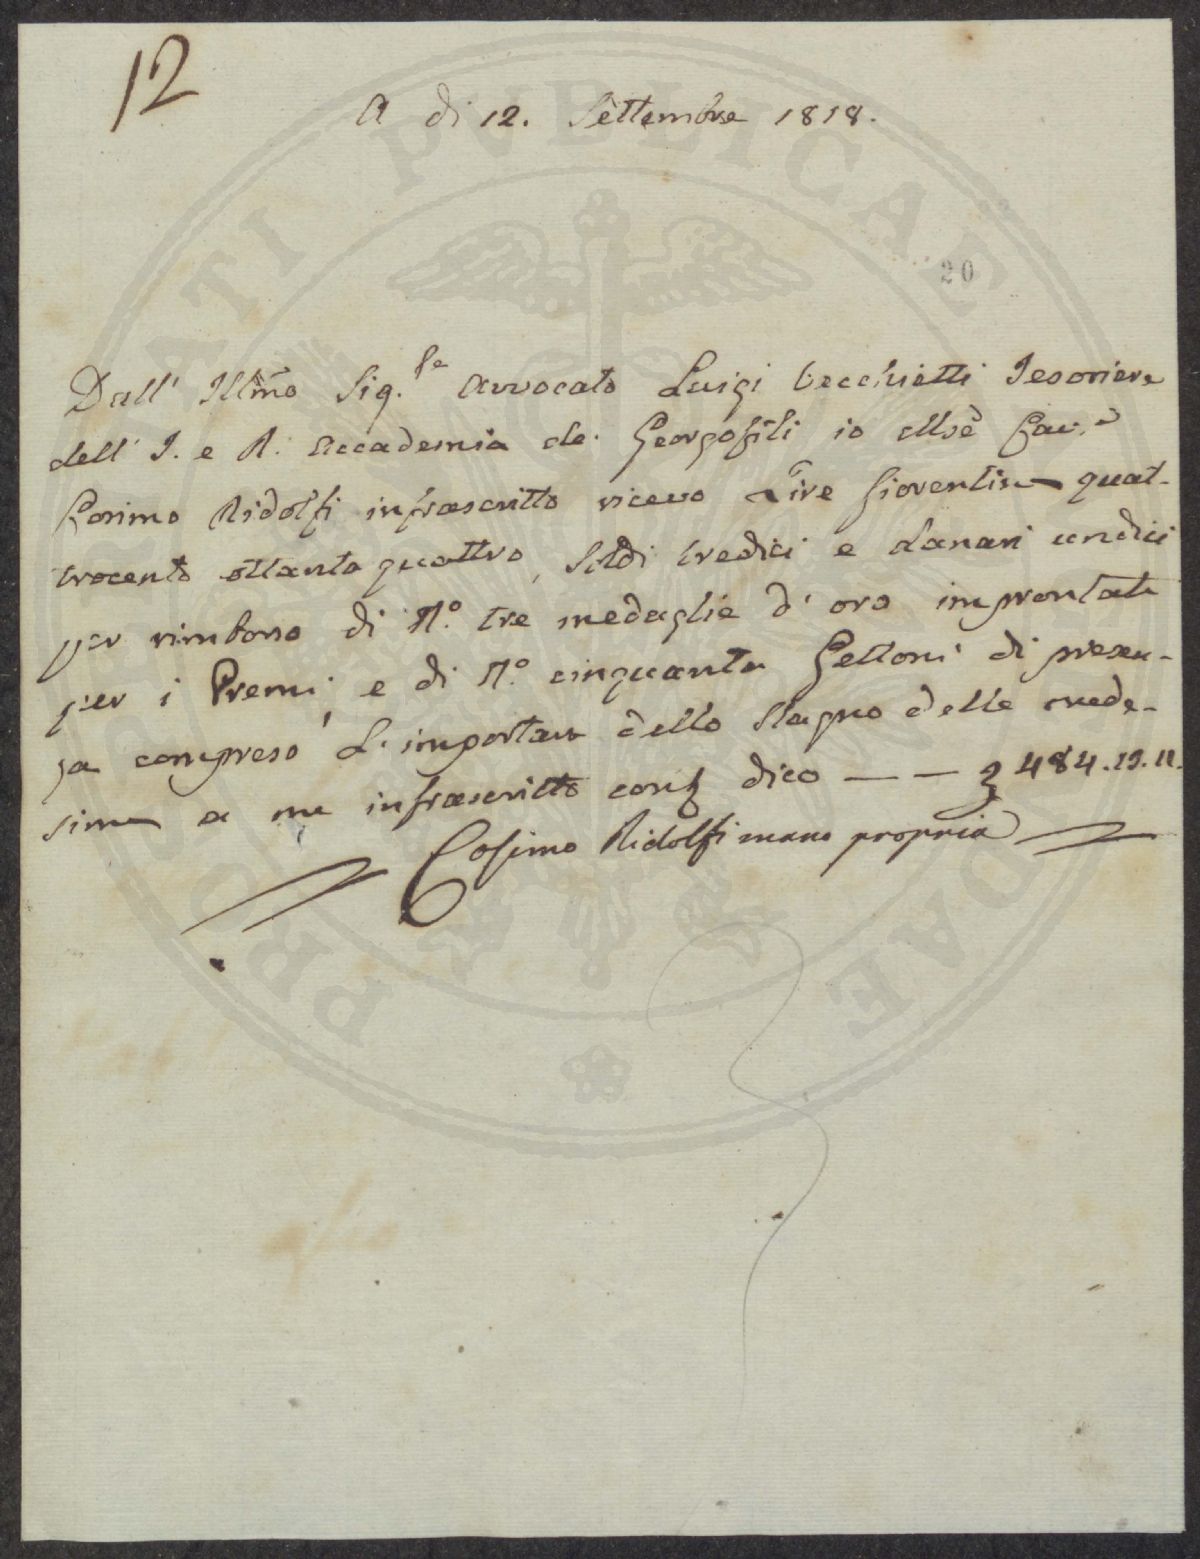 12
A dì 12. Settembre 1818.
20
Dall' Illmo Sig.re Avvocato Luigi Vecchietti Tesoriere
dell' I. e R. Accademia de' Georgofili io Mse Cav.e
Cosimo Ridolfi infrascritto ricevo Lire Fiorentine quat-
trocento ottanta quattro, Soldi tredici e danari undici
per rimborso di N.o tre medaglie d'oro improntate
per i Premi, e di N.o cinquanta Gettoni di presen-
za compreso L'importare dello Stagno delle mede-
sime a me infrascritto dico — — £ 484.13.11.
Cosimo Ridolfi mano propria
PROSPERITATI PVBLICAE AVGENDAE